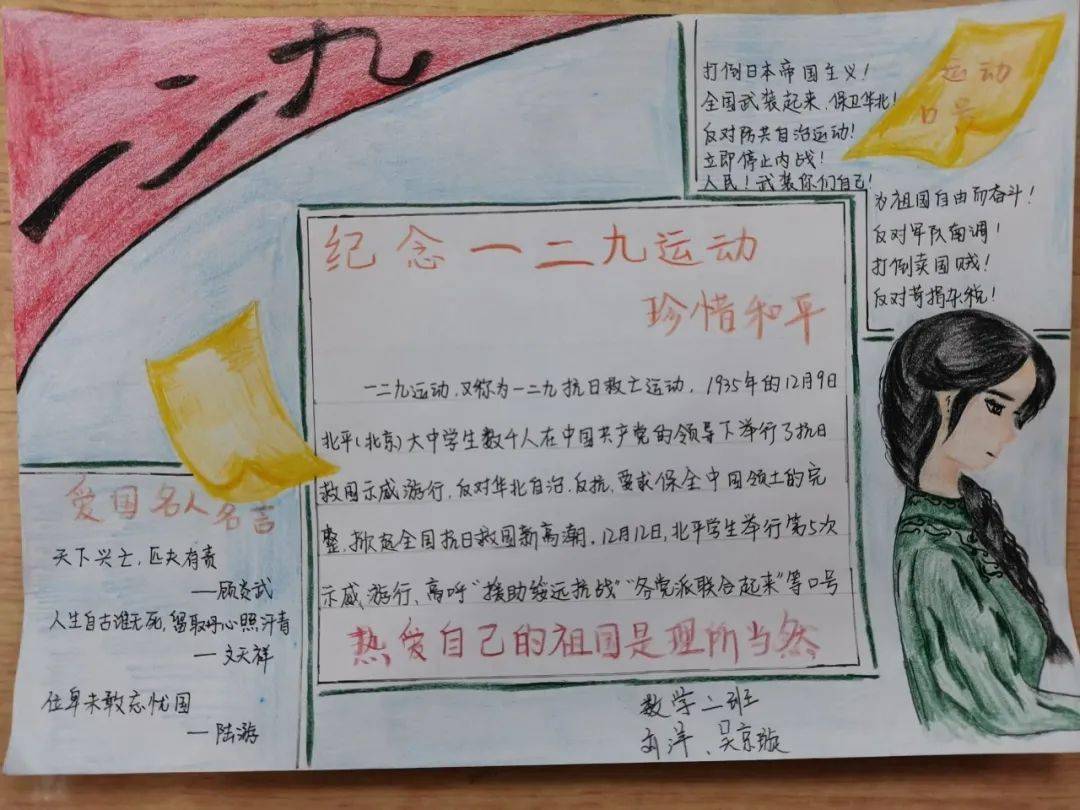 一二九
打倒日本帝国主义！
全国武装起来，保卫华北！
反对防共自治运动！
立即停止内战！
人民！武装你们自己！
运动
口号
为祖国自由而奋斗！
反对军队南调！
打倒卖国贼！
反对苛捐杂税！
纪念一二九运动
珍惜和平
一二九运动，又称为一二九抗日救亡运动，1935年的12月9日
北平（北京）大中学生数千人在中国共产党的领导下举行了抗日
救国示威游行，反对华北自治，反抗，要求保全中国领土的完
整，掀起全国抗日救国新高潮，12月12日，北平学生举行第5次
示威游行、高呼“援助绥远抗战”“各党派联合起来”等口号
热爱自己的祖国是理所当然
爱国名人名言
天下兴亡，匹夫有责
—顾炎武
人生自古谁无死，留取丹心照汗青
—文天祥
位卑未敢忘忧国
—陆游
数学二班
刘洋、吴京璇